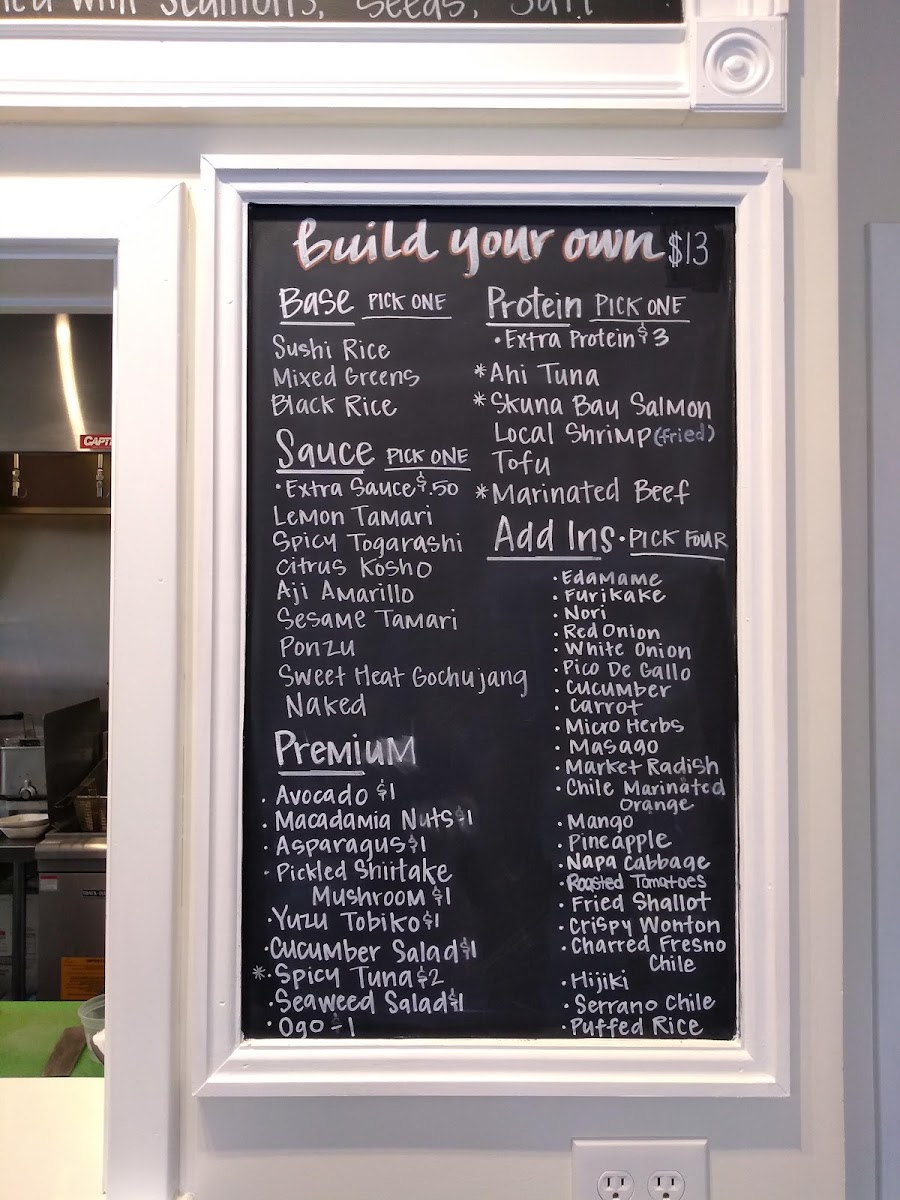 with Scallions, Seeds, Salt
Build your own $13
Base PICK ONE
Sushi Rice
Mixed Greens
Black Rice
Sauce PICK ONE
• Extra Sauce $.50
Lemon Tamari
Spicy Togarashi
Citrus Kosho
Aji Amarillo
Sesame Tamari
Ponzu
Sweet Heat Gochujang
Naked
Premium
• Avocado $1
• Macadamia Nuts $1
• Asparagus $1
• Pickled Shiitake
Mushroom $1
• Yuzu Tobiko $1
• Cucumber Salad $1
*• Spicy Tuna $2
• Seaweed Salad $1
• Ogo $1
Protein PICK ONE
• Extra Protein $3
* Ahi Tuna
* Skuna Bay Salmon
Local Shrimp (fried)
Tofu
* Marinated Beef
Add Ins • PICK FOUR
• Edamame
• Furikake
• Nori
• Red Onion
• White Onion
• Pico De Gallo
• Cucumber
• Carrot
• Micro Herbs
• Masago
• Market Radish
• Chile Marinated
Orange
• Mango
• Pineapple
• Napa Cabbage
• Roasted Tomatoes
• Fried Shallot
• Crispy Wonton
• Charred Fresno
Chile
• Hijiki
• Serrano Chile
• Puffed Rice
CAPT